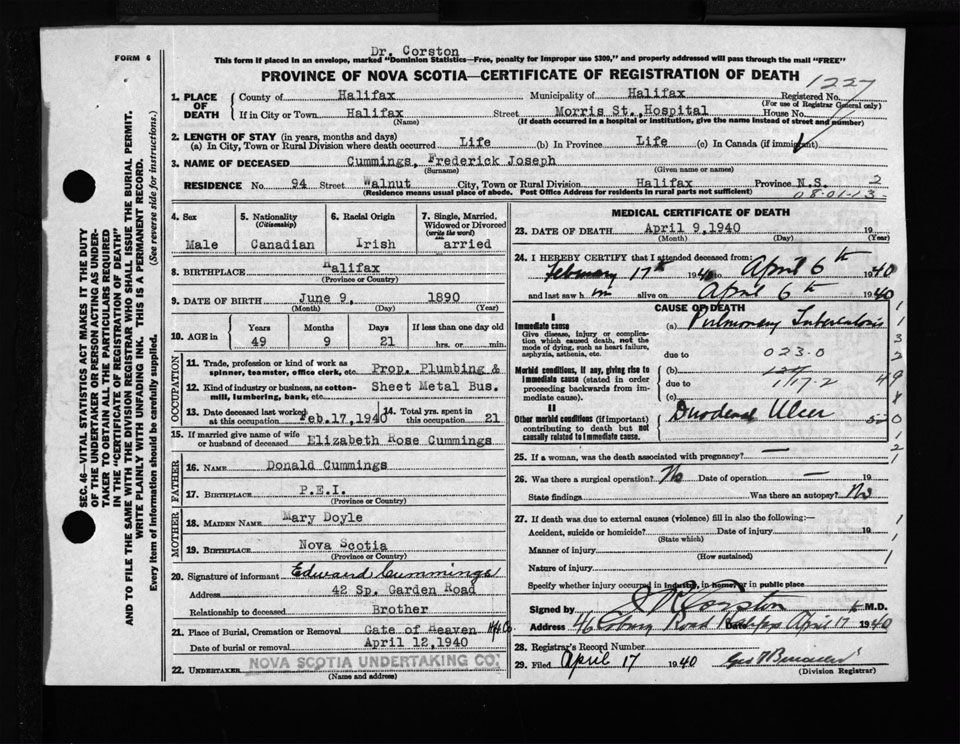 Dr. Corston
FORM 6
This form if placed in an envelope, marked "Dominion Statistics—Free, penalty for improper use $300," and properly addressed will pass through the mail "FREE"
PROVINCE OF NOVA SCOTIA—CERTIFICATE OF REGISTRATION OF DEATH
1227
1. PLACE OF DEATH
County of Halifax Municipality of Halifax Registered No.
(For use of Registrar General only)
If in City or Town Halifax Street Morris St., Hospital House No.
(Name) (If death occurred in a hospital or institution, give the name instead of street and number)
2. LENGTH OF STAY (in years, months and days)
(a) In City, Town or Rural Division where death occurred Life (b) In Province Life (c) In Canada (if immigrant)
3. NAME OF DECEASED Cummings, Frederick Joseph
(Surname) (Given name or names)
RESIDENCE No. 94 Street Walnut City, Town or Rural Division Halifax Province N.S. 2
(Residence means usual place of abode. Post Office Address for residents in rural parts not sufficient) 08-01-13
SEC. 46—VITAL STATISTICS ACT MAKES IT THE DUTY
OF THE UNDERTAKER OR PERSON ACTING AS UNDER-
TAKER TO OBTAIN ALL THE PARTICULARS REQUIRED
IN THE "CERTIFICATE OF REGISTRATION OF DEATH"
AND TO FILE THE SAME WITH THE DIVISION REGISTRAR WHO SHALL ISSUE THE BURIAL PERMIT.
WRITE PLAINLY WITH UNFADING INK. THIS IS A PERMANENT RECORD.
Every item of information should be carefully supplied. (See reverse side for instructions.)
4. Sex
Male
5. Nationality
(Citizenship)
Canadian
6. Racial Origin
Irish
7. Single, Married, Widowed or Divorced
(write the word)
arried
8. BIRTHPLACE Halifax
(Province or Country)
9. DATE OF BIRTH June 9, 1890
(Month) (Day) (Year)
10. AGE in Years Months Days If less than one day old
49 9 21 hrs. or min.
OCCUPATION
11. Trade, profession or kind of work as
spinner, teamster, office clerk, etc. Prop. Plumbing &
12. Kind of industry or business, as cotton-
mill, lumbering, bank, etc. Sheet Metal Bus.
13. Date deceased last worked
at this occupation Feb.17,1940
14. Total yrs. spent in
this occupation 21
15. If married give name of wife
or husband of deceased Elizabeth Rose Cummings
FATHER
16. NAME Donald Cummings
17. BIRTHPLACE P.E.I.
(Province or Country)
MOTHER
18. MAIDEN NAME Mary Doyle
19. BIRTHPLACE Nova Scotia
(Province or Country)
20. Signature of informant Edward Cummings
Address 42 Sp. Garden Road
Relationship to deceased Brother
21. Place of Burial, Cremation or Removal Gate of Heaven Hfx Co
Date of burial or removal April 12,1940
22. UNDERTAKER NOVA SCOTIA UNDERTAKING CO.
(Name and address)
MEDICAL CERTIFICATE OF DEATH
23. DATE OF DEATH April 9,1940 19
(Month) (Day) (Year)
24. I HEREBY CERTIFY that I attended deceased from:
February 17th 1940 to April 6th 1940
and last saw him alive on April 6th 1940
CAUSE OF DEATH
I
Immediate cause (a) Pulmonary Tuberculosis
Give disease, injury or complica-
tion which caused death, not the
mode of dying, such as heart failure,
asphyxia, asthenia, etc.
due to 023.0
Morbid conditions, if any, giving rise to
immediate cause (stated in order
proceeding backwards from im-
mediate cause).
(b)
due to 117.2
(c)
II
Other morbid conditions (if important)
contributing to death but not
causally related to immediate cause.
Duodenal Ulcer
1
1
3
2
49
8
0
1
2
1
25. If a woman, was the death associated with pregnancy? —
26. Was there a surgical operation? No Date of operation — 19
State findings Was there an autopsy? No
27. If death was due to external causes (violence) fill in also the following:—
Accident, suicide or homicide? Date of injury 19
(State which)
Manner of injury
(How sustained)
Nature of injury
Specify whether injury occurred in industry, in home, or in public place
1
1
1
Signed by Corston M.D.
Address 46 Road Halifax Date April 17 1940
28. Registrar's Record Number
29. Filed April 17 1940
(Division Registrar)